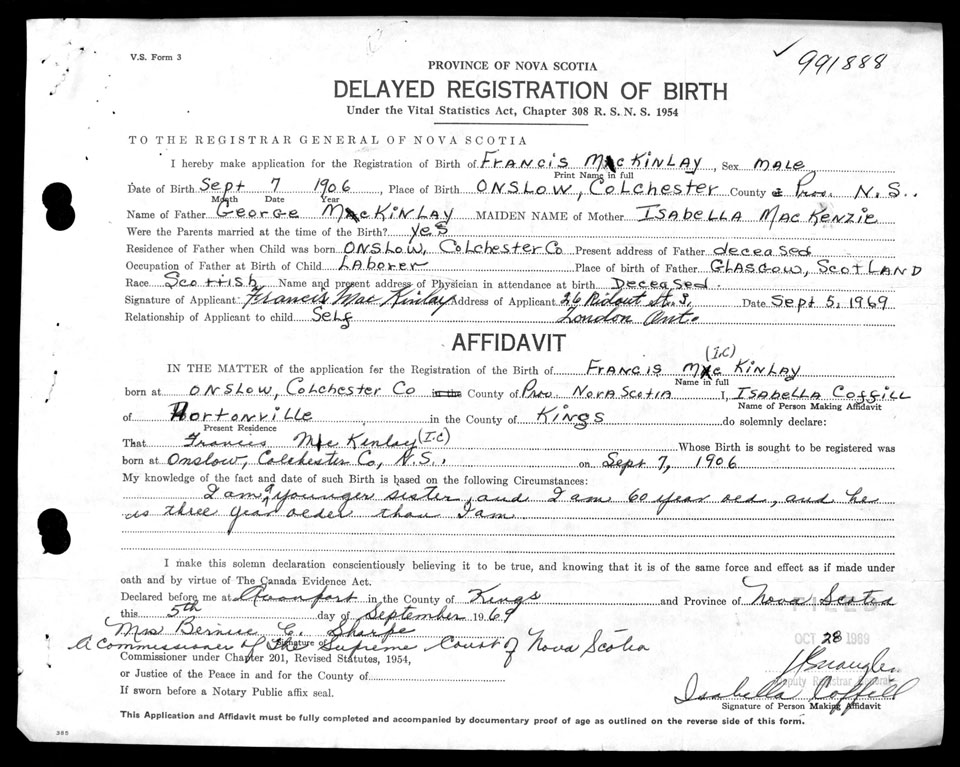 V.S. Form 3
✓ 991888
PROVINCE OF NOVA SCOTIA
DELAYED REGISTRATION OF BIRTH
Under the Vital Statistics Act, Chapter 308 R. S. N. S. 1954
TO THE REGISTRAR GENERAL OF NOVA SCOTIA
I hereby make application for the Registration of Birth of FRANCIS MacKINLAY, Sex MALE
Print Name in full
Date of Birth Sept 7 1906, Place of Birth ONSLOW, COLCHESTER County Prov. N.S..
Month Date Year
Name of Father GEORGE MacKINLAY MAIDEN NAME of Mother ISABELLA MACKENZIE
Were the Parents married at the time of the Birth? yes
Residence of Father when Child was born ONSLOW, COLCHESTER Co Present address of Father deceased
Occupation of Father at Birth of Child LABORER Place of birth of Father GLASGOW, SCOTLAND
Race Scottish Name and present address of Physician in attendance at birth Deceased.
Signature of Applicant Francis MacKinlay Address of Applicant 26 Ridout St. S. Date Sept 5, 1969
Relationship of Applicant to child Self London Ont.
AFFIDAVIT
(I.C)
IN THE MATTER of the application for the Registration of the Birth of FRANCIS Mac KINLAY
Name in full
born at ONSLOW, COLCHESTER Co County of Prov. NOVA SCOTIA I, ISABELLA COFFILL
Name of Person Making Affidavit
of Hortonville in the County of KINGS do solemnly declare:
Present Residence
That Francis Mac Kinlay (I.C) Whose Birth is sought to be registered was
born at Onslow, Colchester Co, N.S. on Sept 7, 1906
My knowledge of the fact and date of such Birth is based on the following Circumstances:
I am a younger sister, and I am 60 year old, and he
is three year older than I am
I make this solemn declaration conscientiously believing it to be true, and knowing that it is of the same force and effect as if made under
oath and by virtue of The Canada Evidence Act.
Declared before me at Avonport in the County of Kings and Province of Nova Scotia
this 5th day of September 1969
Mrs Bernice C. Sharpe
OCT 28 1969
Signature
A Commissioner of the Supreme Court of Nova Scotia
Commissioner under Chapter 201, Revised Statutes, 1954,
or Justice of the Peace in and for the County of
Deputy Registrar General
If sworn before a Notary Public affix seal.
Isabella Coffill
Signature of Person Making Affidavit
This Application and Affidavit must be fully completed and accompanied by documentary proof of age as outlined on the reverse side of this form.
385